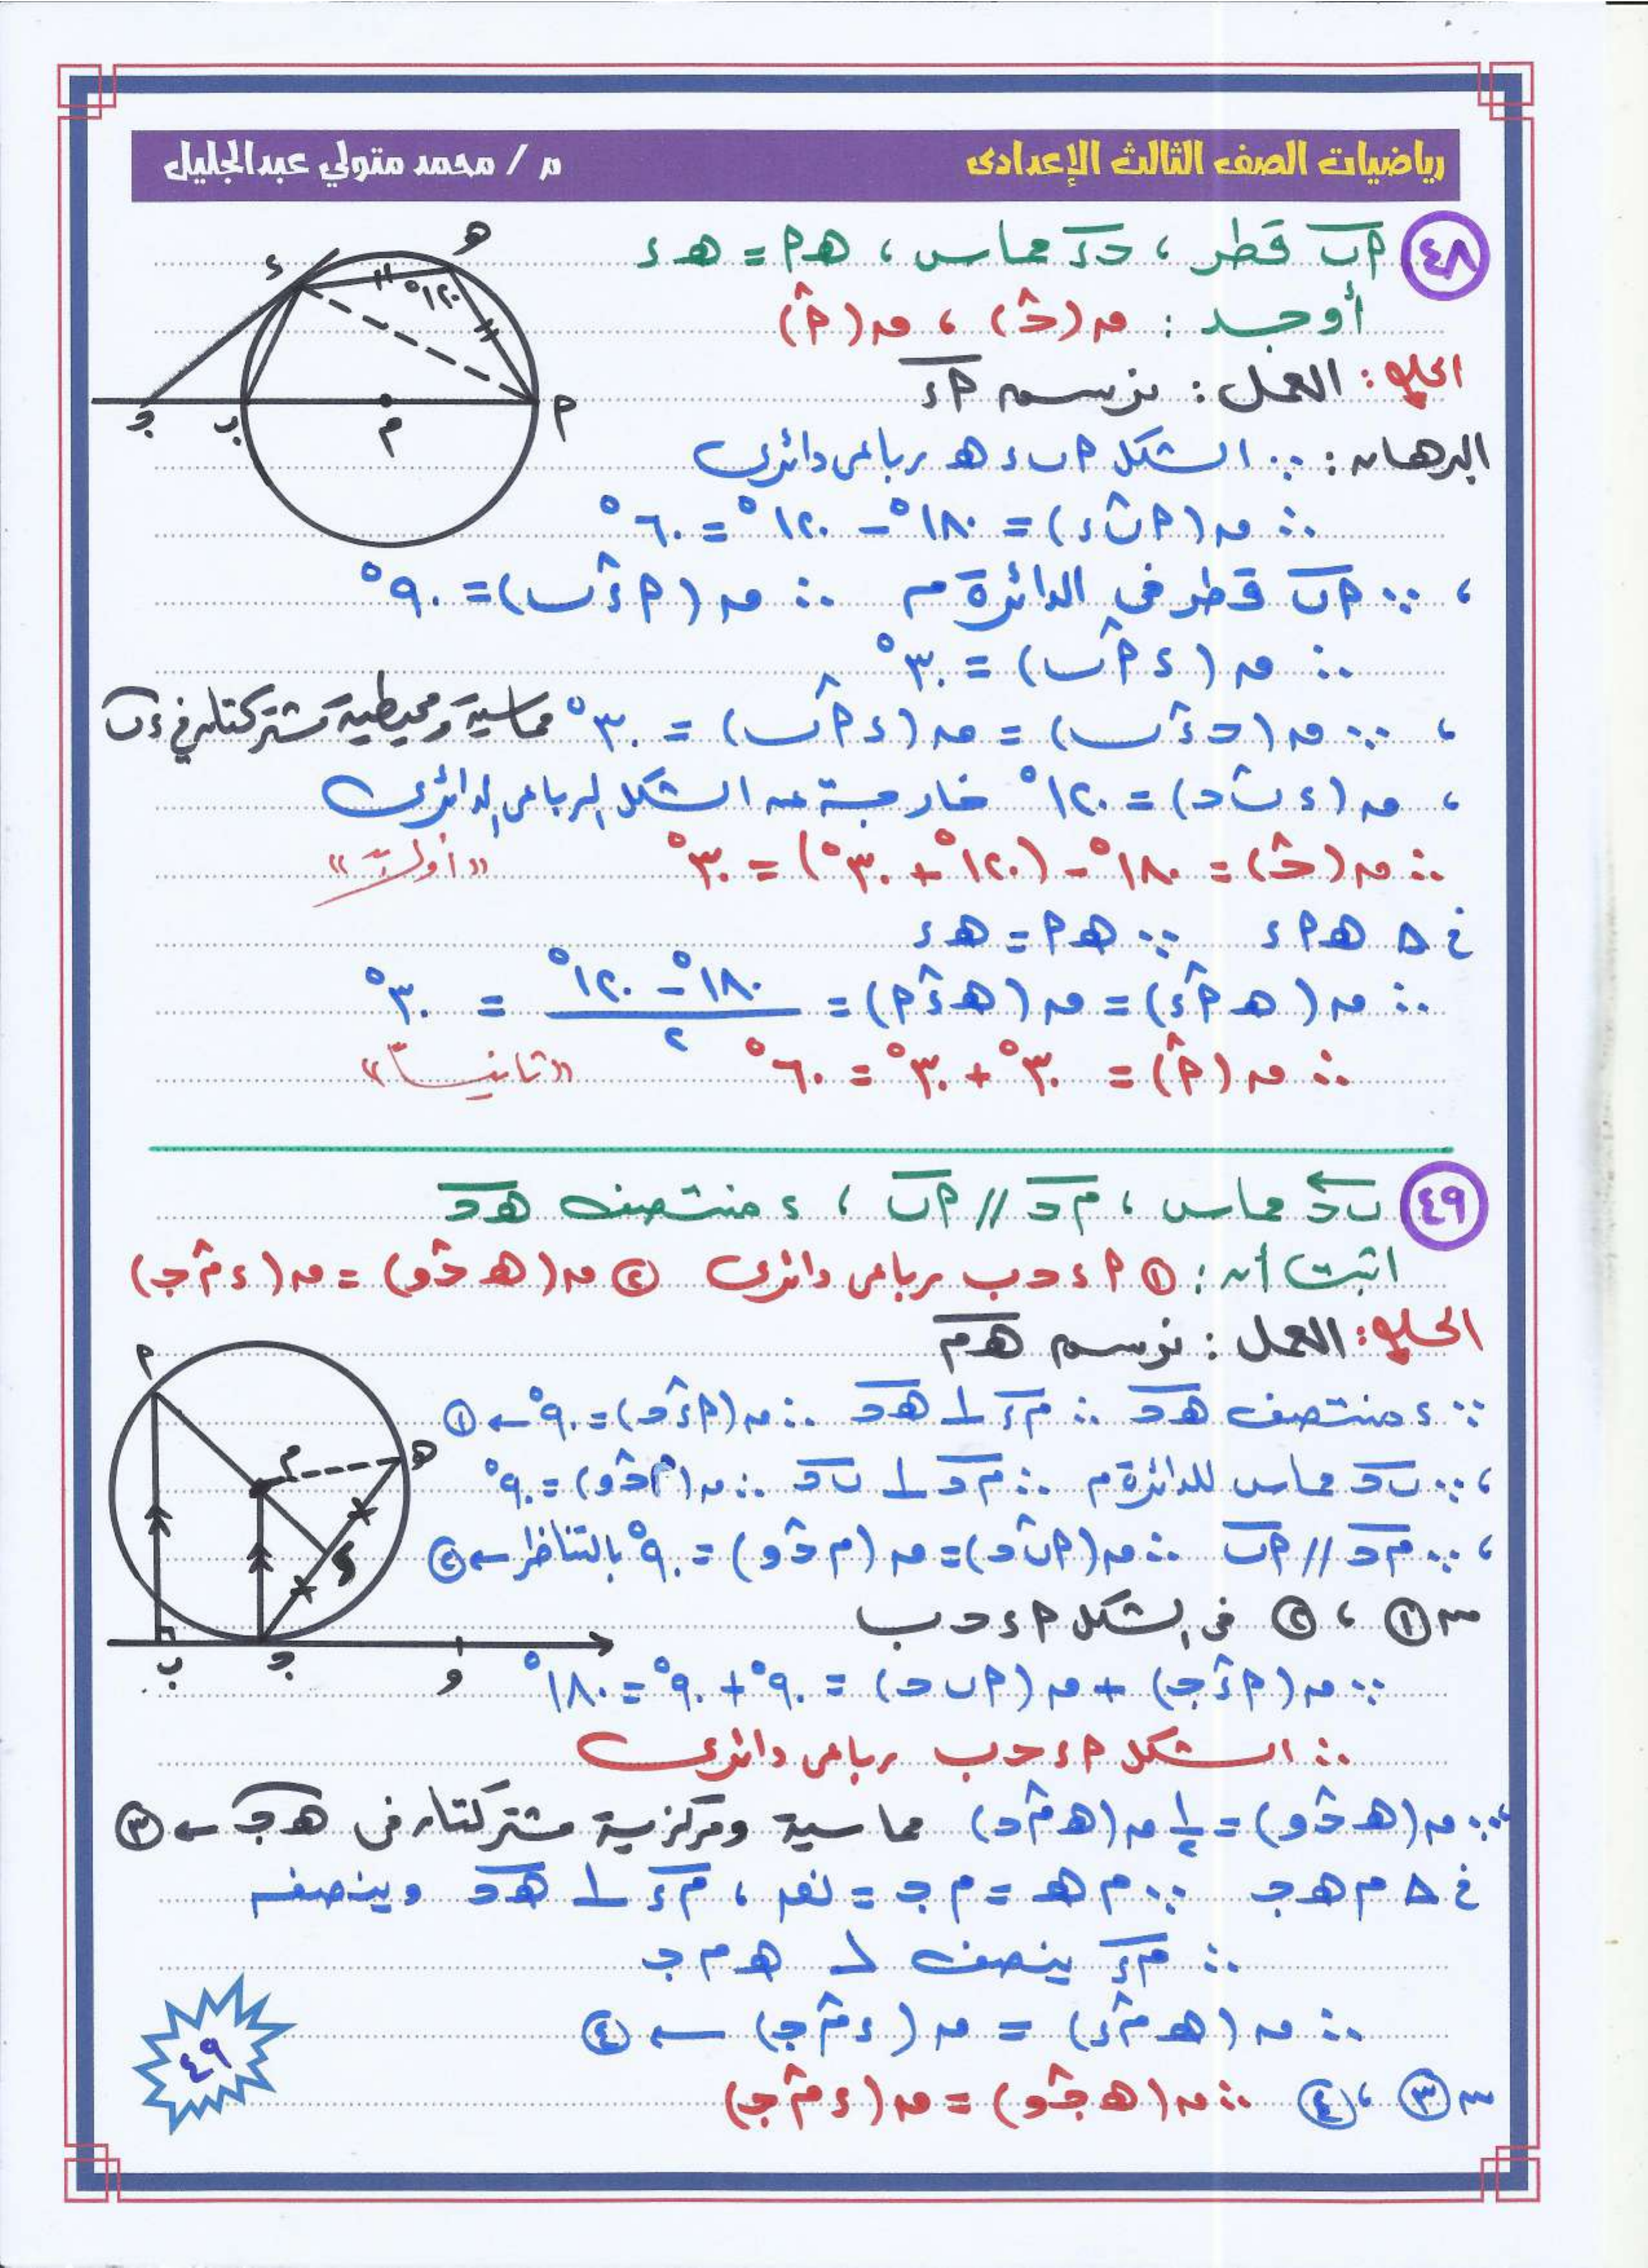 رياضيات الصف الثالث الإعدادى
م / محمد متولي عبدالجليل
٤٨ أب قطر ، حـء مماس ، هـ أ = هـ ء
أوجد : ق(حـ) ، ق(أ)
الحلو : العمل : نرسم أء
البرهان : ∵ الشكل أ ب ء هـ رباعى دائرى
∴ ق(أ ب ء) = ١٨٠° − ١٢٠° = ٦٠°
، ∵ أب قطر فى الدائرة م ∴ ق(أ ء ب) = ٩٠°
∴ ق(ء أ ب) = ٣٠°
، ∵ ق(حـ ء ب) = ق(ء أ ب) = ٣٠° مماسية ومحيطية مشتركتان في ءب
، ق(ء ب حـ) = ١٢٠° خارجة عن الشكل الرباعى الدائرى
∴ ق(حـ) = ١٨٠° − (١٢٠° + ٣٠°) = ٣٠° «أولاً»
فى Δ هـ أ ء ∵ هـ أ = هـ ء
∴ ق(هـ أ ء) = ق(هـ ء أ) = (١٨٠° − ١٢٠°) / ٢ = ٣٠°
∴ ق(أ) = ٣٠° + ٣٠° = ٦٠° «ثانياً»
هـ
ء
١٢٠°
أ
م
ب
جـ
٤٩ ب حـ مماس ، م حـ // أب ، ء منتصف هـ حـ
اثبت أن : ① أ ء حـ ب رباعى دائرى ② ق(هـ حـ و) = ق(ء م جـ)
الحلو : العمل : نرسم هـ م
∵ ء منتصف هـ حـ ∴ م ء ⊥ هـ حـ ∴ ق(أ ء حـ) = ٩٠° ← ①
، ∵ ب حـ مماس للدائرة م ∴ م حـ ⊥ ب حـ ∴ ق(م حـ و) = ٩٠°
، ∵ م حـ // أب ∴ ق(أ ب حـ) = ق(م حـ و) = ٩٠° بالتناظر ← ②
من ① ، ② فى الشكل أ ء حـ ب
∵ ق(أ ء جـ) + ق(أ ب حـ) = ٩٠° + ٩٠° = ١٨٠°
∴ الشكل أ ء حـ ب رباعى دائرى
، ∵ ق(هـ حـ و) = ١/٢ ق(هـ م حـ) مماسية ومركزية مشتركتان فى هـ جـ ← ③
فى Δ م هـ جـ ∵ م هـ = م جـ = نق ، م ء ⊥ هـ حـ وينصفه
∴ م ء ينصف ∠ هـ م جـ
∴ ق(هـ م ء) = ق(ء م جـ) ← ④
من ③ ، ④ ∴ ق(هـ جـ و) = ق(ء م جـ)
أ
م
هـ
ء
ب
جـ
و
٤٩